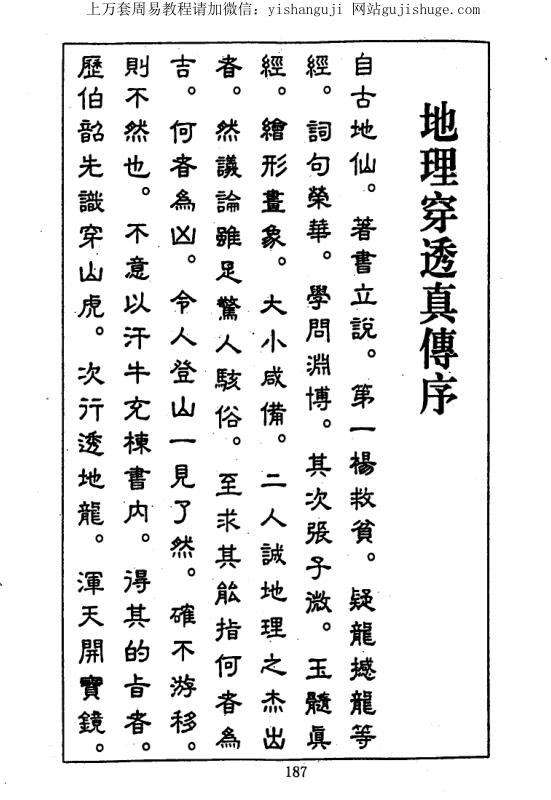 上万套周易教程请加微信：yishanguji 网站gujishuge.com
地理穿透真傳序
自古地仙。著書立說。第一楊救貧。疑龍撼龍等
經。詞句榮華。學問淵博。其次張子微。玉髓眞
經。繪形畫象。大小咸備。二人誠地理之杰出
者。然議論雖足驚人駭俗。至求其能指何者為
吉。何者為凶。令人登山一見了然。確不游移。
則不然也。不意以汗牛充棟書內。得其的旨者。
歷伯韶先識穿山虎。次行透地龍。渾天開寶鏡。
187